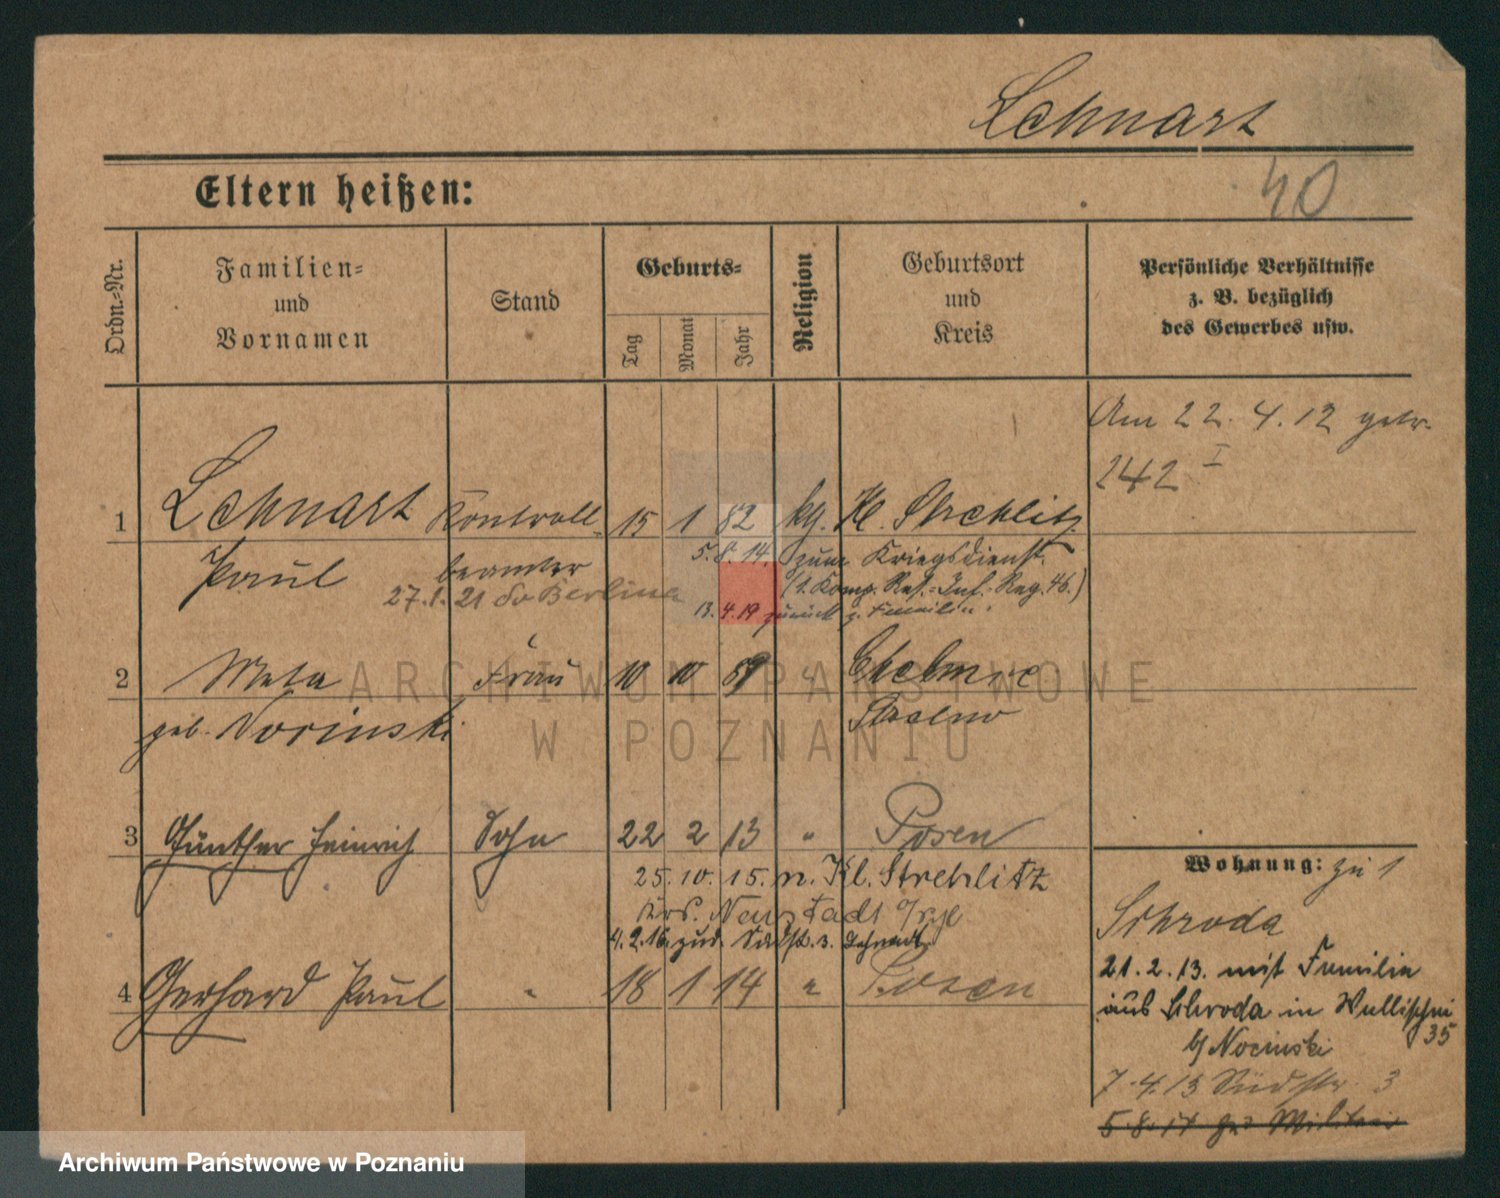 Lehnart
40
Eltern heißen:
Ordn.-Nr.
Familien-
und
Vornamen
Stand
Geburts-
Tag
Monat
Jahr
Religion
Geburtsort
und
Kreis
Persönliche Verhältnisse
z. B. bezüglich
des Gewerbes usw.
Am 22. 4. 12 getr.
242 I
1 Lehnart Kontroll- 15 1 82 kth. Kl. Strehlitz
Paul beamter 5. 8. 14. zum Kriegsdienst.
27. 1. 21 (1. Komp. Res.-Inf.-Reg. 46.)
13. 4. 19 zurück z. Familie.
2 Meta Frau 10 10 " Chelmce
geb. Strelno
3 Günther Heinrich Sohn 22 2 13 " Posen
25. 10. 15. n. Kl. Strehlitz
Krs. Neustadt
4. 2. 16. zur. 3.
4 Gerhard Paul " 18 1 14 " Posen
Wohnung: zu 1
Schroda
21. 2. 13. mit Familie
aus Schroda in Wallischei
35
b/ Nocinski
7. 4. 13 Südstr. 3
5. 8. 14 zum Militär
ARCHIWUM PAŃSTWOWE
W POZNANIU
Archiwum Państwowe w Poznaniu